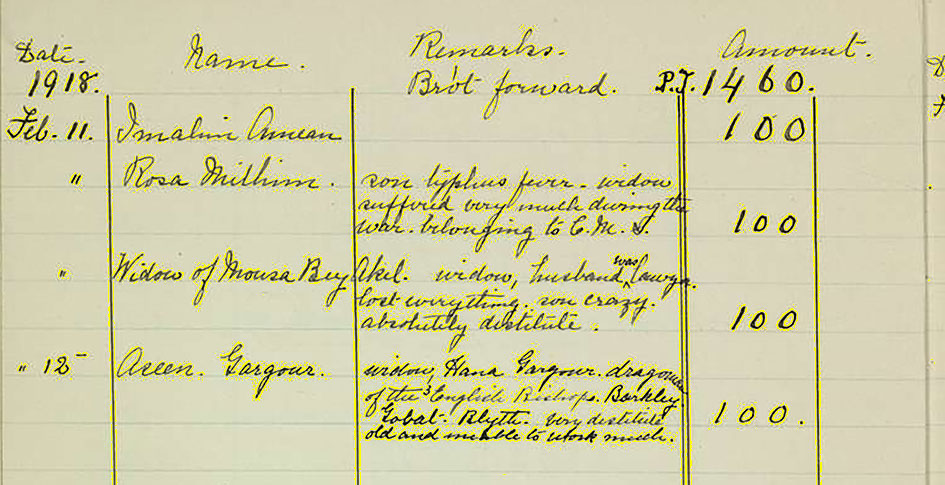 Date. Name. Remarks. Amount.
1918. Bro't forward. P.T. 1460.
Feb. 11. 100
" Rosa Millim. son typhus fever - widow
suffered very much during the
war. belonging to C.M.S. 100
" Widow of Mousa Bey Akel. widow, husband was lawyer.
lost everything. son crazy.
absolutely destitute. 100
" 12 Aseen. Gargour. widow, Hana Gargour. dragoman
of the 3 English Bishops. Barkley
Gobat. Blyth. very destitute 100.
old and unable to work much.